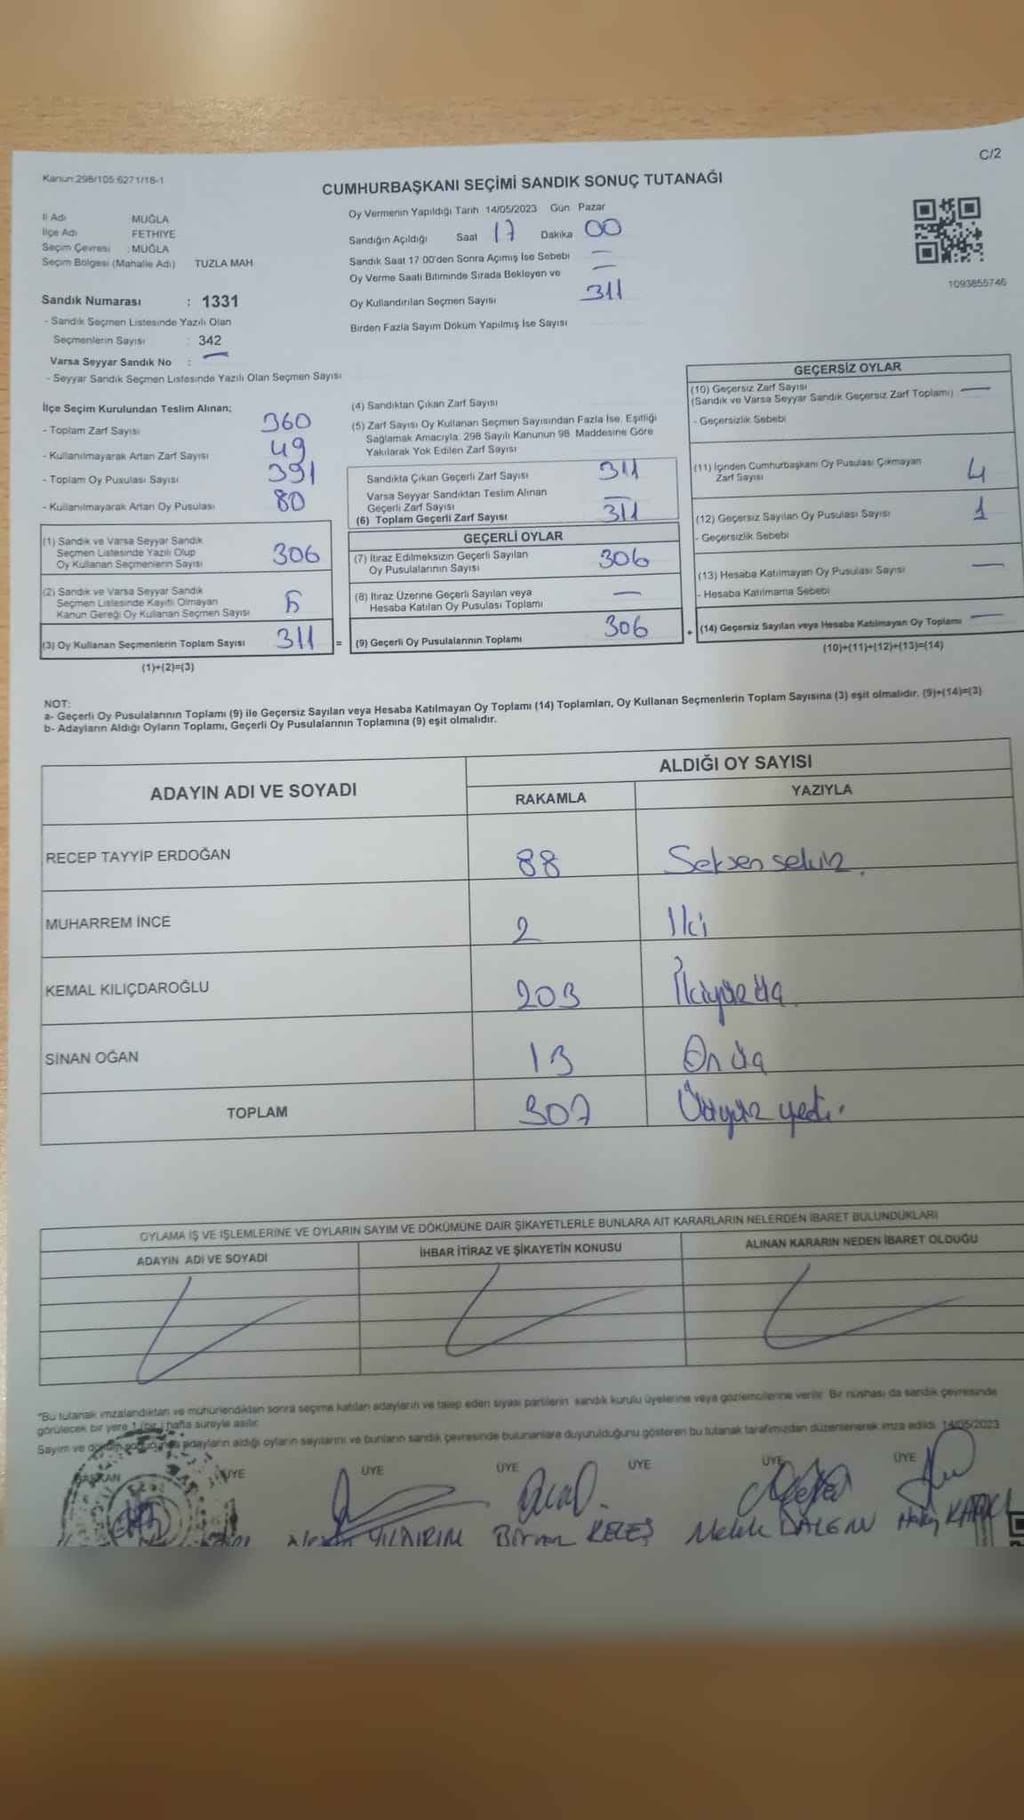 C/2
Kanun:298/105 6271/16-1
CUMHURBAŞKANI SEÇİMİ SANDIK SONUÇ TUTANAĞI
İl Adı MUĞLA
İlçe Adı FETHİYE
Seçim Çevresi : MUĞLA
Seçim Bölgesi (Mahalle Adı) TUZLA MAH
Sandık Numarası : 1331
- Sandık Seçmen Listesinde Yazılı Olan
Seçmenlerin Sayısı : 342
Varsa Seyyar Sandık No : —
- Seyyar Sandık Seçmen Listesinde Yazılı Olan Seçmen Sayısı
Oy Vermenin Yapıldığı Tarih 14/05/2023 Gün Pazar
Sandığın Açıldığı Saat 17 Dakika 00
Sandık Saat 17 00'den Sonra Açımış İse Sebebi —
Oy Verme Saati Bitiminde Sırada Bekleyen ve —
Oy Kullandırılan Seçmen Sayısı 311
Birden Fazla Sayım Döküm Yapılmış İse Sayısı
1093855746
İlçe Seçim Kurulundan Teslim Alınan;
- Toplam Zarf Sayısı 360
- Kullanılmayarak Artan Zarf Sayısı 49
- Toplam Oy Pusulası Sayısı 391
- Kullanılmayarak Artan Oy Pusulası 80
(1) Sandık ve Varsa Seyyar Sandık
Seçmen Listesinde Yazılı Olup
Oy Kullanan Seçmenlerin Sayısı 306
(2) Sandık ve Varsa Seyyar Sandık
Seçmen Listesinde Kayıtlı Olmayan
Kanun Gereği Oy Kullanan Seçmen Sayısı 5
(3) Oy Kullanan Seçmenlerin Toplam Sayısı 311 =
(1)+(2)=(3)
(4) Sandıktan Çıkan Zarf Sayısı
(5) Zarf Sayısı Oy Kullanan Seçmen Sayısından Fazla İse, Eşitliği
Sağlamak Amacıyla, 298 Sayılı Kanunun 98. Maddesine Göre
Yakılarak Yok Edilen Zarf Sayısı
Sandıkta Çıkan Geçerli Zarf Sayısı 311
Varsa Seyyar Sandıktan Teslim Alınan
Geçerli Zarf Sayısı —
(6) Toplam Geçerli Zarf Sayısı 311
GEÇERLİ OYLAR
(7) İtiraz Edilmeksizin Geçerli Sayılan
Oy Pusulalarının Sayısı 306
(8) İtiraz Üzerine Geçerli Sayılan veya
Hesaba Katılan Oy Pusulası Toplamı —
(9) Geçerli Oy Pusulalarının Toplamı 306 +
GEÇERSİZ OYLAR
(10) Geçersiz Zarf Sayısı —
(Sandık ve Varsa Seyyar Sandık Geçersiz Zarf Toplamı)
- Geçersizlik Sebebi
(11) İçinden Cumhurbaşkanı Oy Pusulası Çıkmayan
Zarf Sayısı 4
(12) Geçersiz Sayılan Oy Pusulası Sayısı 1
- Geçersizlik Sebebi
(13) Hesaba Katılmayan Oy Pusulası Sayısı —
- Hesaba Katılmama Sebebi
(14) Geçersiz Sayılan veya Hesaba Katılmayan Oy Toplamı —
(10)+(11)+(12)+(13)=(14)
NOT:
a- Geçerli Oy Pusulalarının Toplamı (9) ile Geçersiz Sayılan veya Hesaba Katılmayan Oy Toplamı (14) Toplamları, Oy Kullanan Seçmenlerin Toplam Sayısına (3) eşit olmalıdır. (9)+(14)=(3)
b- Adayların Aldığı Oyların Toplamı, Geçerli Oy Pusulalarının Toplamına (9) eşit olmalıdır.
ADAYIN ADI VE SOYADI ALDIĞI OY SAYISI
RAKAMLA YAZIYLA
RECEP TAYYİP ERDOĞAN 88 Seksen sekiz.
MUHARREM İNCE 2 İki
KEMAL KILIÇDAROĞLU 203 İkiyüz üç
SİNAN OĞAN 13 On üç
TOPLAM 307 Üçyüz yedi.
OYLAMA İŞ VE İŞLEMLERİNE VE OYLARIN SAYIM VE DÖKÜMÜNE DAİR ŞİKAYETLERLE BUNLARA AİT KARARLARIN NELERDEN İBARET BULUNDUKLARI
ADAYIN ADI VE SOYADI İHBAR İTİRAZ VE ŞİKAYETİN KONUSU ALINAN KARARIN NEDEN İBARET OLDUĞU
"Bu tutanak imzalandıktan ve mühürlendikten sonra seçime katılan adayların ve talep eden siyasi partilerin sandık kurulu üyelerine veya gözlemcilerine verilir. Bir nüshası da sandık çevresinde
görülecek bir yere 1 (bir) hafta süreyle asılır.
Sayım ve döküm sonucunda adayların aldığı oyların sayılarını ve bunların sandık çevresinde bulunanlara duyurulduğunu gösteren bu tutanak tarafımızdan düzenlenerek imza edildi. 14/05/2023
BAŞKAN ÜYE ÜYE ÜYE ÜYE ÜYE ÜYE
YILDIRIM KELEŞ Melek